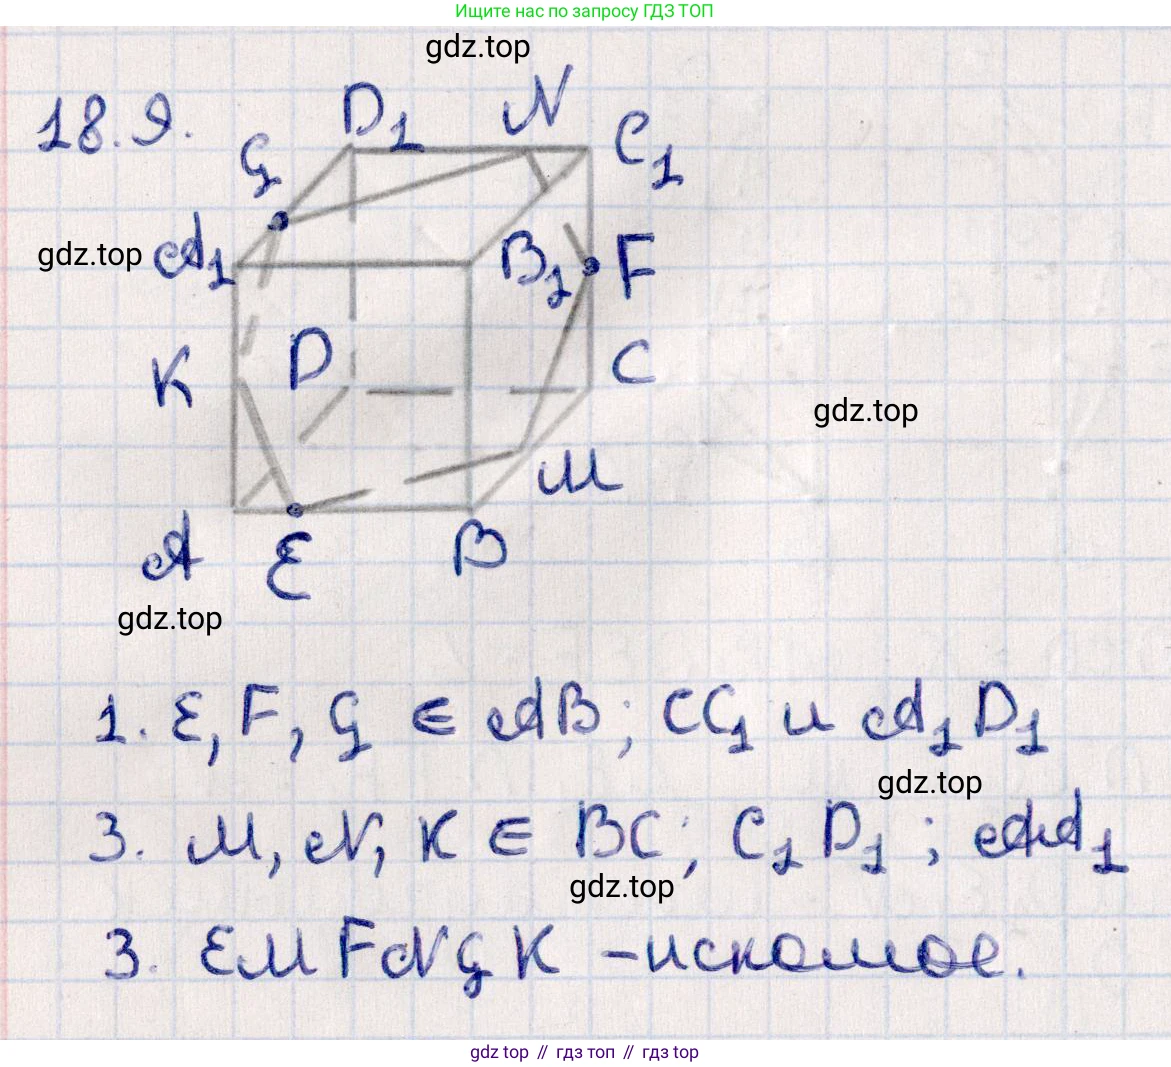 Ищите нас по запросу ГДЗ ТОП
gdz.top
18.9.
D₁ N C₁
G
gdz.top A₁ B₁ F
K D C
gdz.top
M
A E B
gdz.top
1. E, F, G ∈ AB; CC₁ и A₁D₁
gdz.top
3. M, N, K ∈ BC; C₁D₁; AA₁
gdz.top
3. EMFNGK – искомое.
gdz top // гдз топ // гдз top